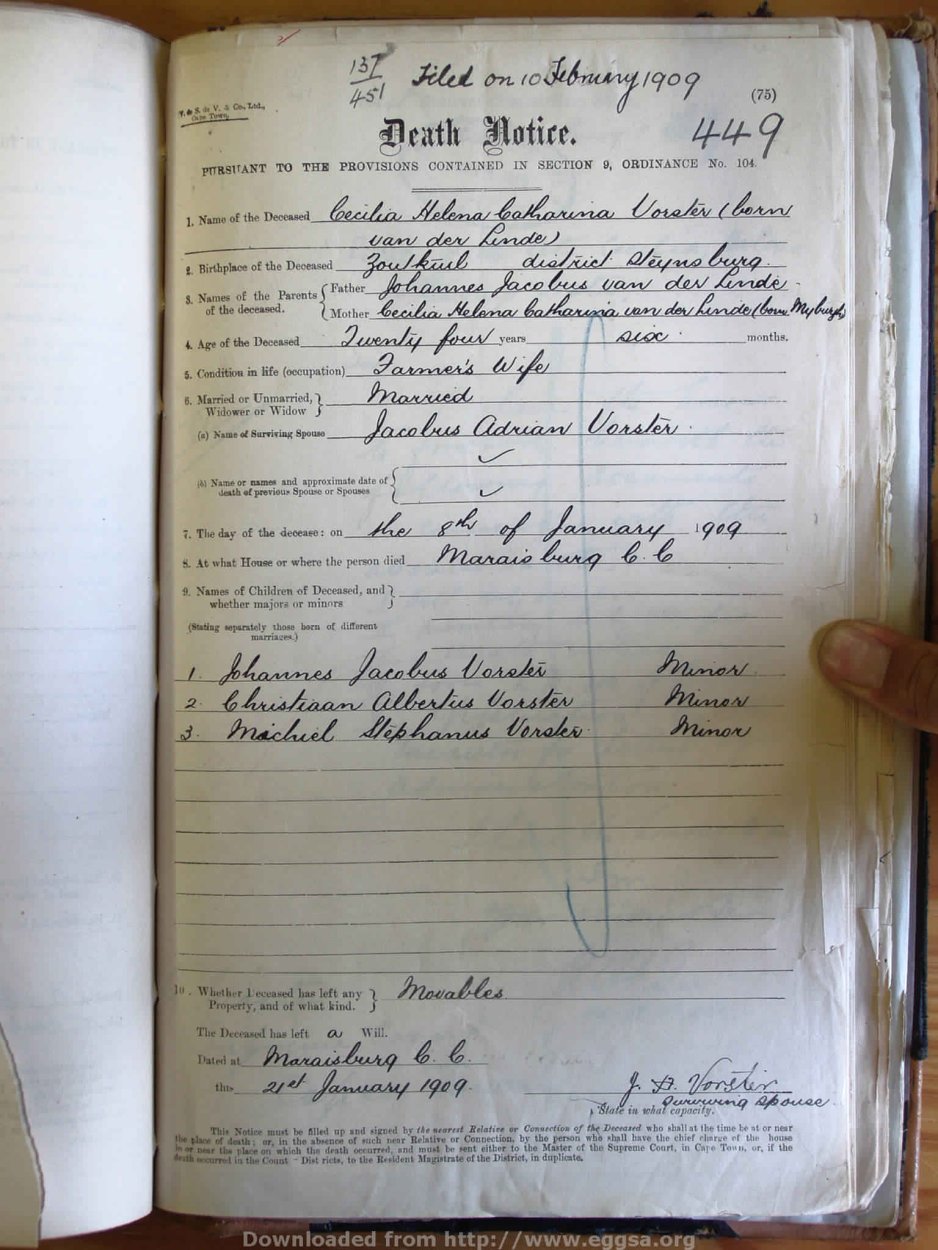 137
451
Filed on 10 February 1909
(75)
Cape Town,
449
Death Notice.
PURSUANT TO THE PROVISIONS CONTAINED IN SECTION 9, ORDINANCE No. 104.
1. Name of the Deceased Cecilia Helena Catharina Vorster (born
van der Linde)
2. Birthplace of the Deceased Zoutkuil district Steynsburg.
3. Names of the Parents of the deceased. Father Johannes Jacobus van der Linde
Mother Cecilia Helena Catharina van der Linde (born Myburgh)
4. Age of the Deceased Twenty four years six months.
5. Condition in life (occupation) Farmer's Wife
6. Married or Unmarried, Widower or Widow Married
(a) Name of Surviving Spouse Jacobus Adrian Vorster
(b) Name or names and approximate date of
death of previous Spouse or Spouses
7. The day of the decease: on the 8th of January 1909
8. At what House or where the person died Maraisburg C. C
9. Names of Children of Deceased, and
whether majors or minors
(Stating separately those born of different
marriages.)
1. Johannes Jacobus Vorster Minor
2. Christiaan Albertus Vorster Minor
3. Michiel Stephanus Vorster Minor
10. Whether Deceased has left any
Property, and of what kind. Movables
The Deceased has left a Will.
Dated at Maraisburg C. C.
this 21st January 1909.
J. A. Vorster
Surviving Spouse
State in what capacity.
This Notice must be filled up and signed by the nearest Relative or Connection of the Deceased who shall at the time be at or near
the place of death; or, in the absence of such near Relative or Connection, by the person who shall have the chief charge of the house
in or near the place on which the death occurred, and must be sent either to the Master of the Supreme Court, in Cape Town, or, if the
death occurred in the Count Districts, to the Resident Magistrate of the District, in duplicate.
Downloaded from http://www.eggsa.org